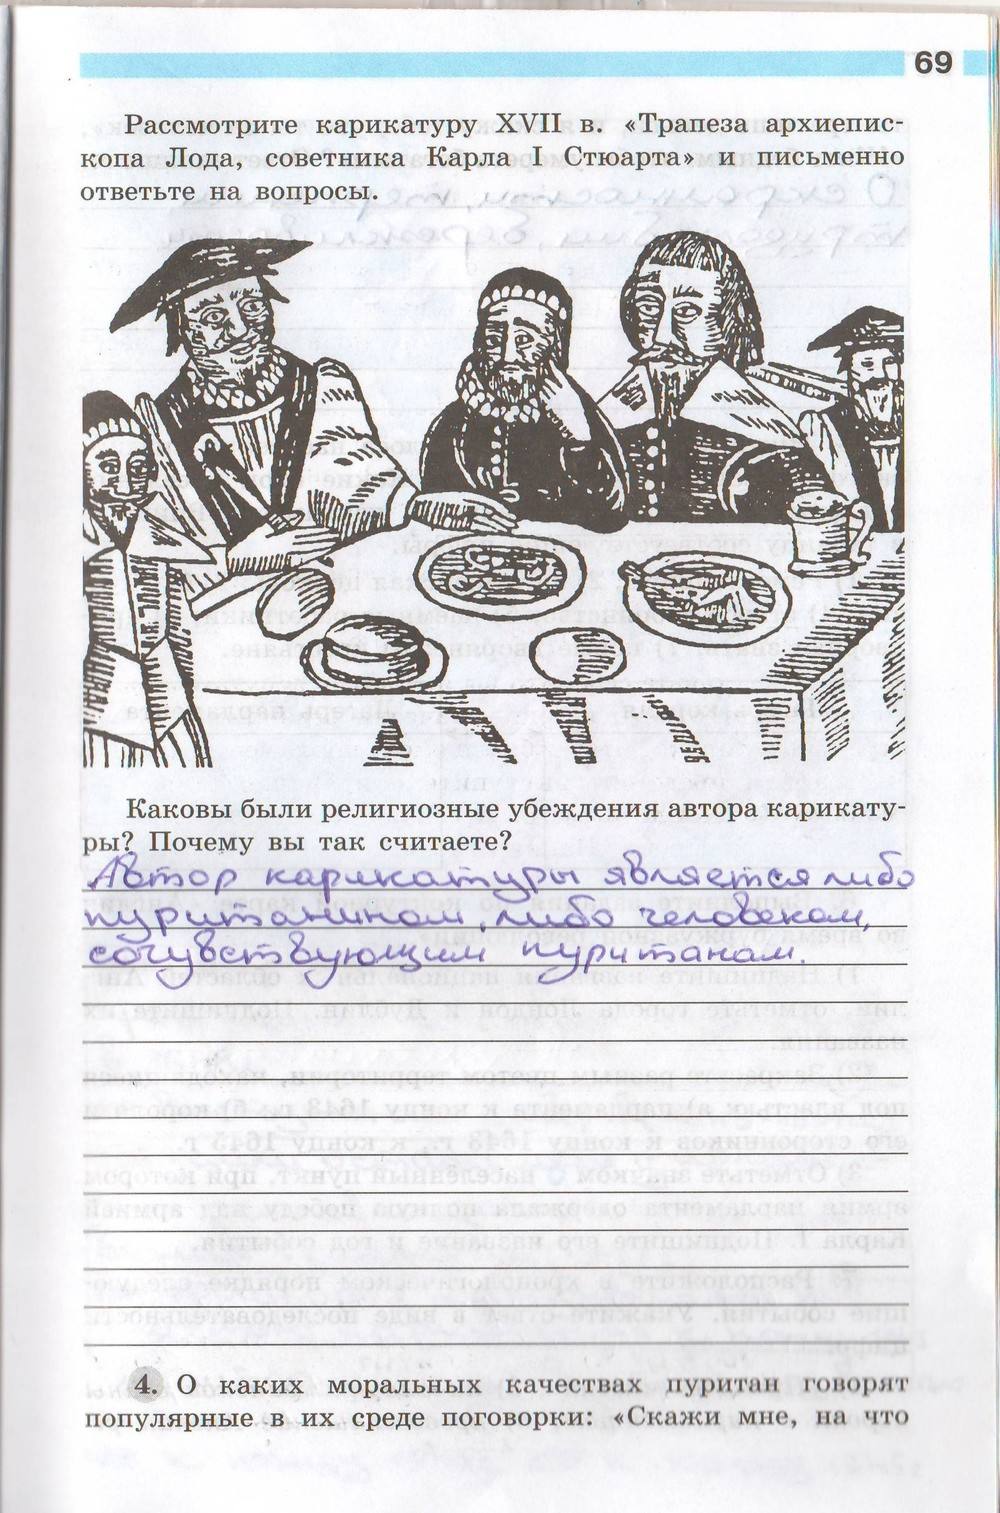 69
Рассмотрите карикатуру XVII в. «Трапеза архиепис-
копа Лода, советника Карла I Стюарта» и письменно
ответьте на вопросы.
Каковы были религиозные убеждения автора карикату-
ры? Почему вы так считаете?
Автор карикатуры является либо
пуританином, либо человеком,
сочувствующим пуританам.
4. О каких моральных качествах пуритан говорят
популярные в их среде поговорки: «Скажи мне, на что